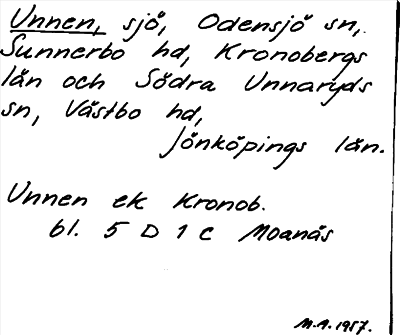 Unnen, sjö, Odensjö sn,
Sunnerbo hd, Kronobergs
län och Södra Unnaryds
sn, Västbo hd,
Jönköpings län.
Unnen ek Kronob.
bl. 5 D 1 c Moanäs
M.A. 1957.